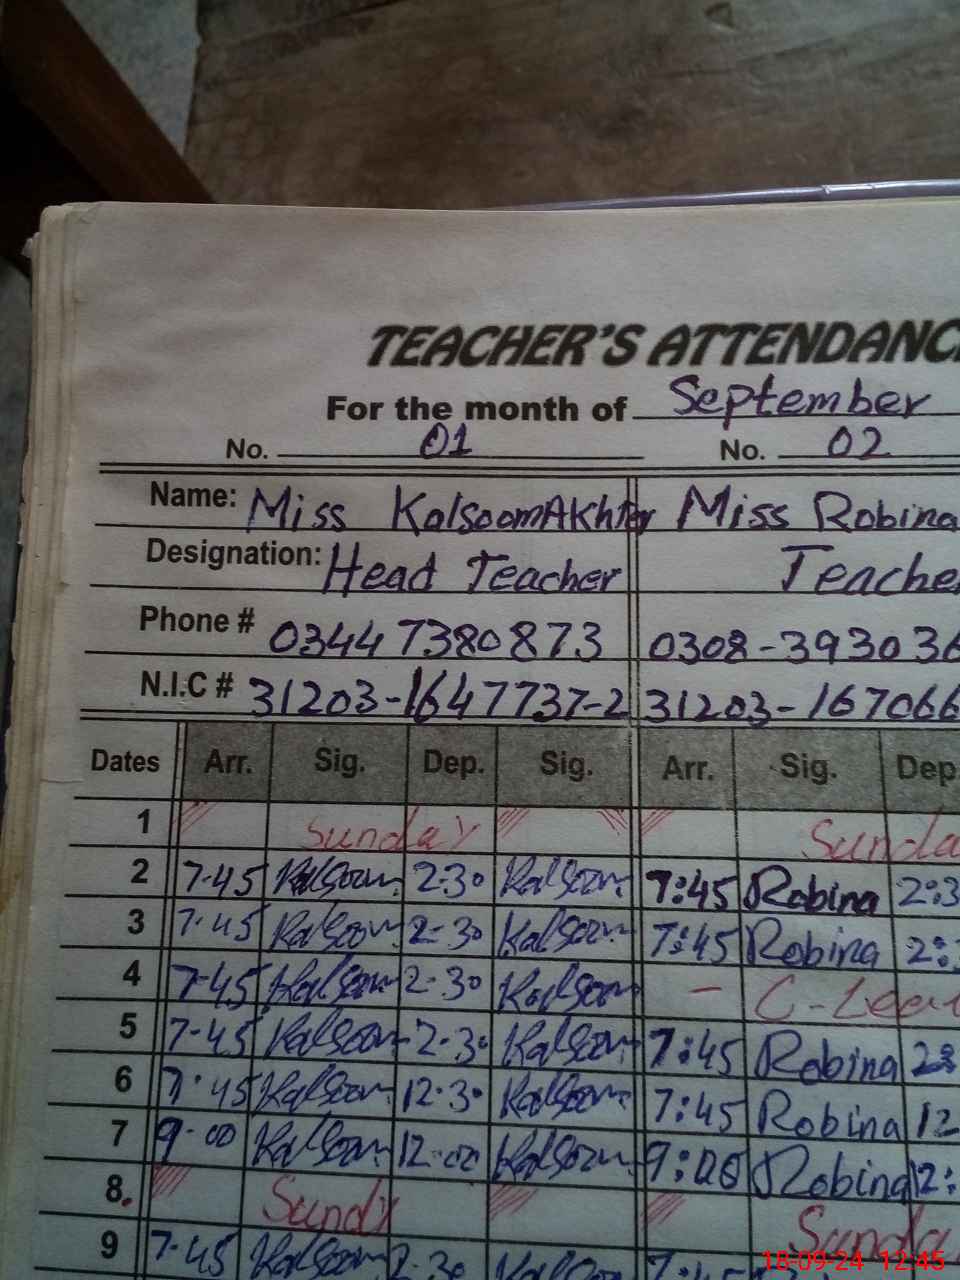 TEACHER'S ATTENDANC
For the month of September
No. 01 No. 02
Name: Miss KalsoomAkhter Miss Robina
Designation: Head Teacher Teache
Phone # 03447380873 0308-393036
N.I.C # 31203-1647737-2 31203-167066
Dates Arr. Sig. Dep. Sig. Arr. Sig. Dep
1 Sunday Sunda
2 7-45 Kalsoom 2-30 Kalsoom 7:45 Robina 2:3
3 7-45 Kalsoom 2-30 Kalsoom 7:45 Robina 2:
4 7-45 Kalsoom 2-30 Kalsoom - C-Leav
5 7-45 Kalsoom 2-30 Kalsoom 7:45 Robina
6 7-45 Kalsoom 12-30 Kalsoom 7:45 Robina 12
7 9-00 Kalsoom 12-00 Kalsoom 9:00 Robina 12:
8. Sundy Sunda
9 7-45 Kalsoom 2-30 Kalsoom 7:45
18-09-24 12:45